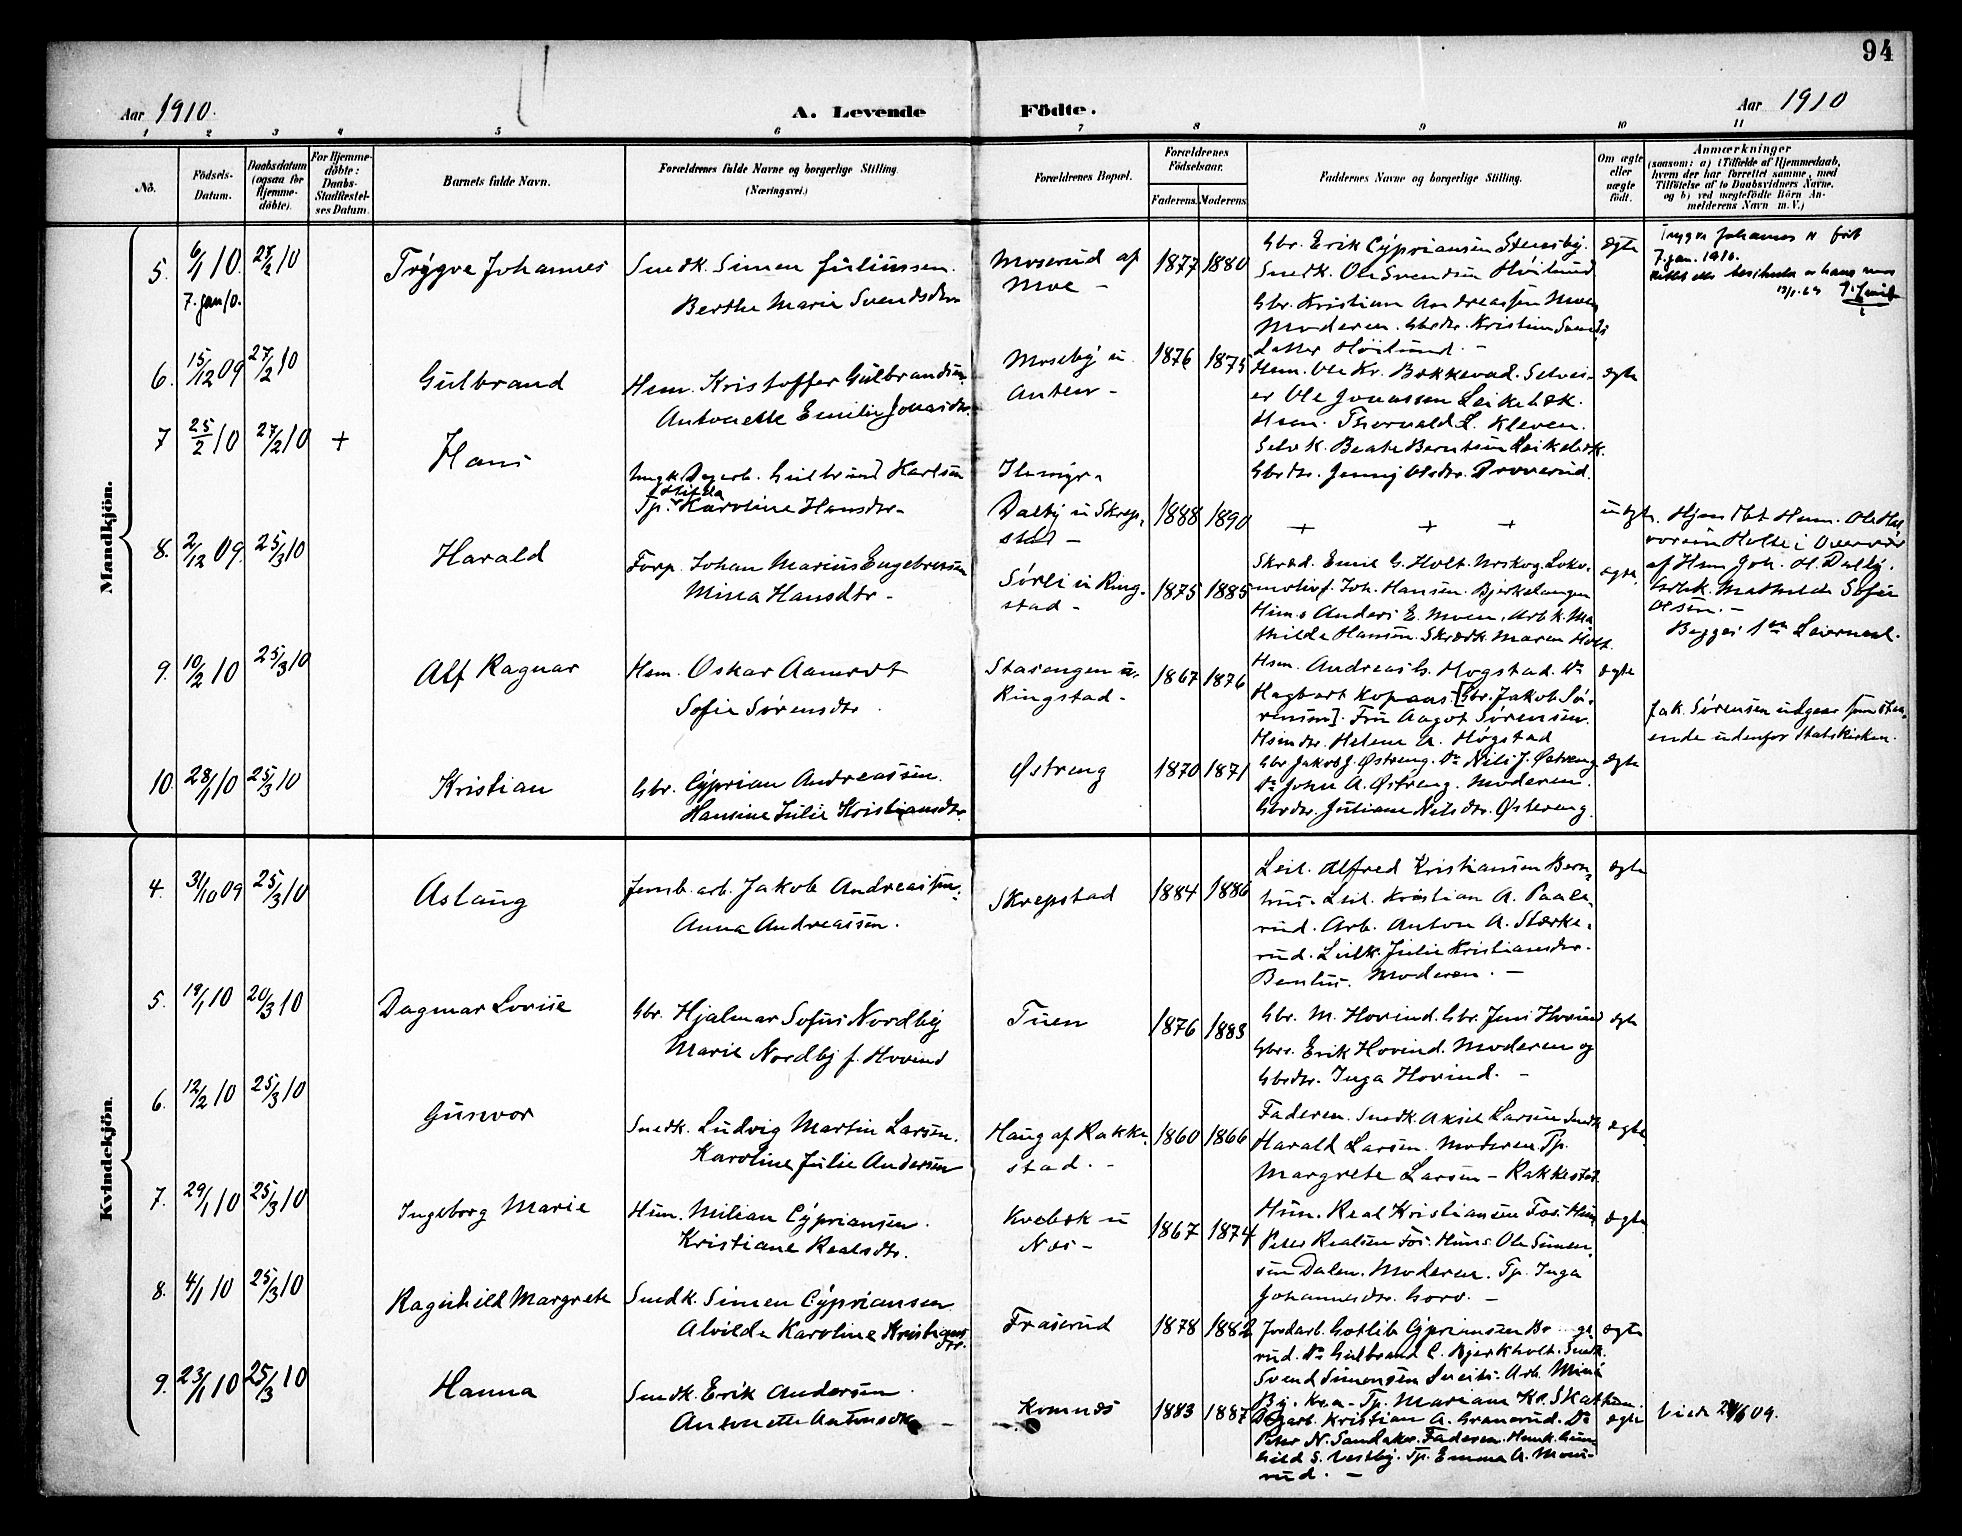 94
Aar 1910.
A. Levende
Födte.
Aar 1910
1 2 3 4 5 6 7 8 9 10 11
No.
Födsels-
Datum.
Daabsdatum
(ogsaa for
Hjemme-
döbte).
For Hjemme-
döbte:
Daabs-
Stadfæstel-
ses Datum.
Barnets fulde Navn.
Forældrenes fulde Navne og borgerlige Stilling
(Næringsvei.)
Forældrenes Bopæl.
Forældrenes
Födselsaar.
Faderens. Moderens.
Faddernes Navne og borgerlige Stilling.
Om ægte
eller
uægte
födt.
Anmærkninger
(saasom: a) i Tilfælde af Hjemmedaab,
hvem der har forrettet samme, med
Tilföielse af to Daabsvidners Navne,
og b) ved uægtefödte Börn An-
melderens Navn m. V.)
Mandkjön.
5. 6/1 10. 27/2 10
7. jan 10.
Trygve Johannes
Smedk. Simen Juliussen.
Berthe Marie Svendsdtr
Moserud af
Moe -
1877 1880
Gbr. Erik Cypriansen Stensby.
Smedk. Ole Svendsen Höilund
Gbr. Kristian Andreassen Moe
Moderen. Gbrdtr. Kristine Svends
datter Höilund. -
ægte
Trygve Johannes er født
7. jan. 1910.
6. 15/12 09 27/2 10
Gulbrand
Hsm. Kristoffer Gulbrandsen.
Antonette Emilie Jonasdtr.
Moseby u
Anten -
1876 1875
Hsm. Ole Kr. Bækkevad. Selvei-
er Ole Jonassen Leikebæk.
Hsm. Thorvald L. Kleven.
Selvk. Beate Berntsen Leikebæk.
Gbrdtr. Jenny Olsdtr. Proverud.
ægte
7 25/2 10 27/2 10 +
Hans
Ungk. Dagarb. Gulbrand Karlsen
Tp. Hilda Karoline Hansdtr -
Ilemyr -
Dalby u Skrep-
stad -
1888 1890
+ + +
uægte.
Hjem dbt Hsm. Ole Hal
vorsen Holte i Overvær
af Hsm Joh. H. Dalby.
Arbk. Mathilde Sofie
Olsen. -
Begges 1ste Leiermaal.
8. 2/12 09. 25/3 10
Harald
Forp. Johan Marius Engebretsen
Mina Hansdtr -
Sørli u Ring-
stad -
1875 1885
Skræd. Emil G. Holt. Urskog. Loko-
motivf. Joh. Hansen. Bjørkelangen
Hsm. Anders E. Moen, Arbk. Ma
thilde Hansen. Skrædk. Maren Holt.
ægte.
9. 10/2 10 25/3 10
Alf Ragnar
Hsm. Oskar Aamodt
Sofie Sørensdtr.
Stasengen u.
Ringstad -
1867 1876
Hsm. Andreas G. Hogstad. Do
Hagbart Kopaas [Gbr. Jakob Sø-
rensen]. Fru Aagot Sørensen.
Hsmdtr. Helene A. Høgstad
ægte
Jak. Sørensen udgaar som staa-
ende udenfor Statskirken.
10. 28/1 10 25/3 10
Kristian
Gbr. Cyprian Andreassen.
Hansine Julie Kristiansdtr.
Østreng
1870 1871
Gbr. Jakob J. Østreng. Do Nils J. Østreng
Do John A. Østreng. Moderen.
Gbrdtr. Juliane Nilsdtr. Østereng.
ægte
Kvindekjön.
4. 31/10 09 25/3 10
Aslaug
Jernb. arb. Jakob Andreassen.
Anna Andreassen.
Skrepstad
1884 1886
Leil. Alfred Kristiansen Bern-
hus. Leil. Kristian A. Paale-
rud. Arb. Anton A. Stærke-
rud. Leilk. Julie Kristiansdtr.
Moderen. -
ægte
5. 19/1 10 20/3 10
Dagmar Lovise
Gbr. Hjalmar Sofus Nordby
Marie Nordby f. Hovind
Tuen
1876 1883
Gbr. M. Hovind. Gbr. Jens Hovind
Gbrs. Erik Hovind. Moderen og
Gbrdtr. Inga Hovind. -
ægte
6. 12/2 10 25/3 10
Gunvor
Smedk. Ludvig Martin Larsen.
Karoline Julie Andersen
Haug af Rakke-
stad. -
1860 1866
Faderen. Smedk Aksel Larsen Smedk
Harald Larsen. Moderen Tp.
Margrete Larsen - Rakkestad.
ægte.
7. 29/1 10 25/3 10
Ingeborg Marie
Hsm. Milian Cypriansen.
Kristiane Realsdtr.
Kvebæk u
Næs -
1867 1874
Hsm. Real Kristiansen Fos. Hsm
Peter Realsen Fos. Hsms. Ole Simen-
sen Dalen. Moderen. Tp. Inga
Johannesdtr. Gorv. -
ægte
8. 4/1 10 25/3 10
Ragnhild Margrete
Smedk. Simen Cypriansen
Alvilde Karoline Kristians
dtr.
Fraserud
1878 1882
Jordarb. Gotlib Cypriansen
rud. Do Gulbrand C. Bjerkholt. Smedk.
Svend Simensen Arb. Mina
Tp. Mariane Kr. Skat
ægte
9. 23/1 10 25/3 10
Hanna
Smedk. Erik Andersen.
Antonette Antonsdtr -
Komnæs
1883 1887
Dagarb. Kristian A. Granerud. Do
Peter N. Sandaker. Faderen. Hsmk. Gun
hild S. Vestby. Tp. Emma A. Moes-
rud. -
ægte
Viede 24/6 09.